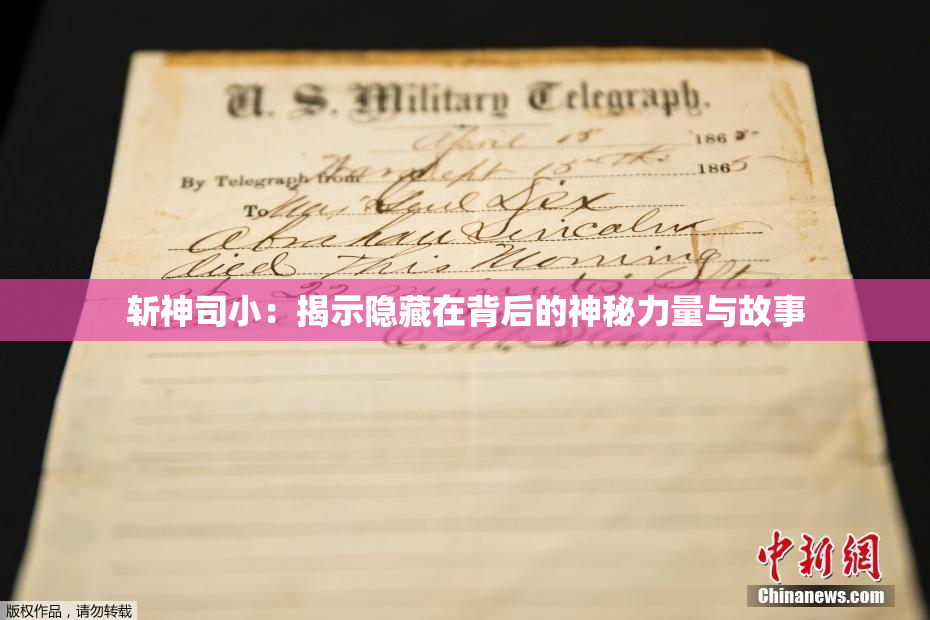 U. S. Military Telegraph.
April 15 1865
By Telegraph from War Dept 15th 1865
To Maj Genl Dix
Abraham Lincoln
died This Morning
at 22 minutes after
斩神司小：揭示隐藏在背后的神秘力量与故事
E. M. Stanton
中新网
版权作品，请勿转载
Chinanews.com